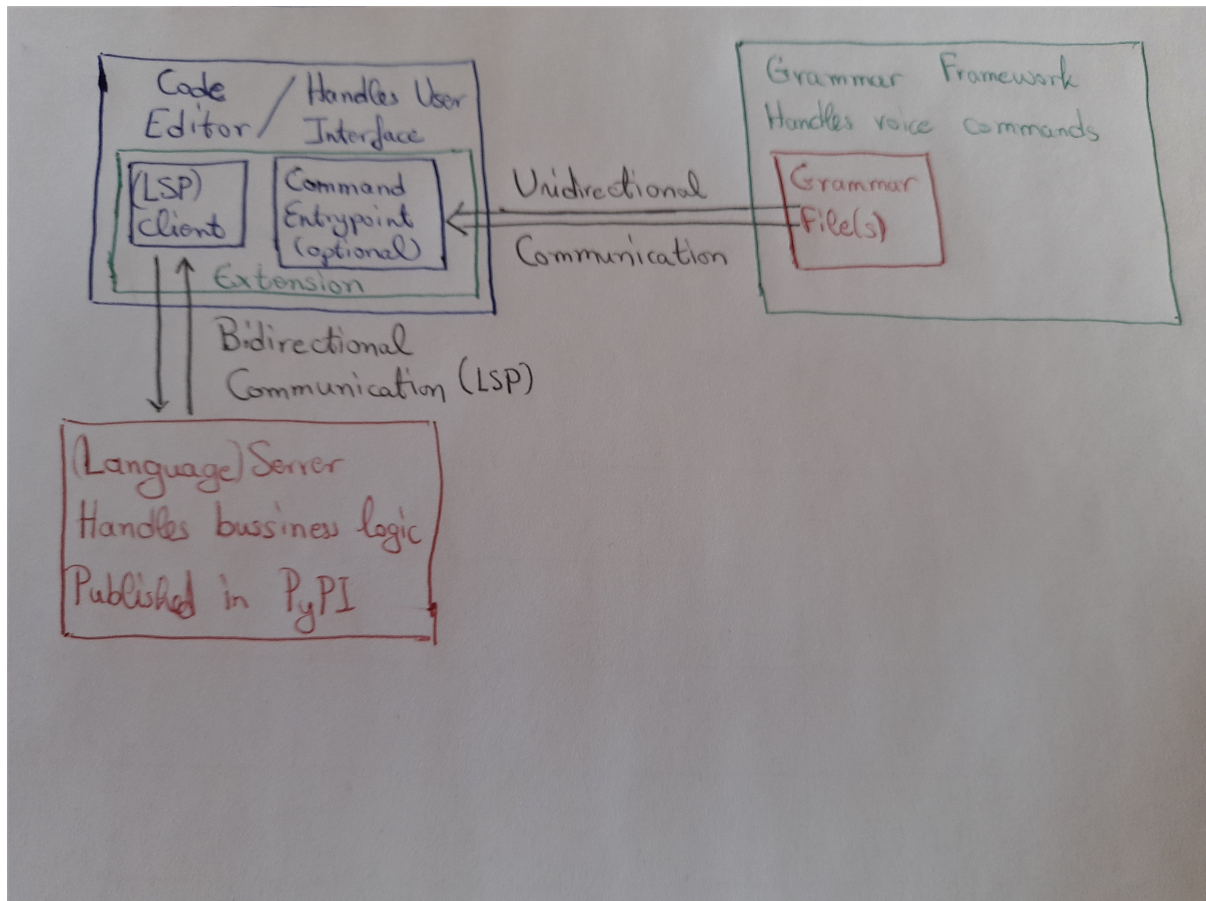 Code / Handles User
Editor / Interface
(LSP)
Client
Command
Entrypoint
(optional)
Extension
Unidirectional
Communication
Grammar Framework
Handles voice commands
Grammar
File(s)
Bidirectional
Communication (LSP)
(Language) Server
Handles bussiness logic
Published in PyPI